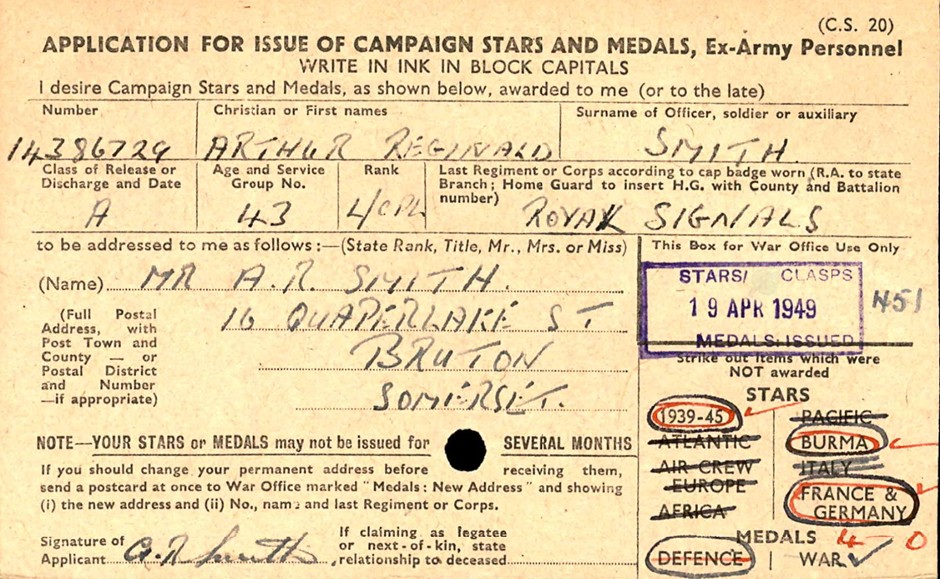 (C.S. 20)
APPLICATION FOR ISSUE OF CAMPAIGN STARS AND MEDALS, Ex-Army Personnel
WRITE IN INK IN BLOCK CAPITALS
I desire Campaign Stars and Medals, as shown below, awarded to me (or to the late)
Number
14386729
Christian or First names
ARTHUR REGINALD
Surname of Officer, soldier or auxiliary
SMITH.
Class of Release or
Discharge and Date
A
Age and Service
Group No.
43
Rank
L/CPL
Last Regiment or Corps according to cap badge worn (R.A. to state
Branch; Home Guard to insert H.G. with County and Battalion
number)
ROYAL SIGNALS
to be addressed to me as follows:—(State Rank, Title, Mr., Mrs. or Miss)
(Name) MR A.R. SMITH.
(Full Postal
Address, with
Post Town and
County — or
Postal District
and Number
—if appropriate)
16 QUAPERLAKE ST
BRUTON
SOMERSET.
This Box for War Office Use Only
STARS/ CLASPS
19 APR 1949
MEDALS: ISSUED
451
Strike out items which were
NOT awarded
STARS
1939-45
ATLANTIC
AIR CREW
EUROPE
AFRICA
PACIFIC
BURMA
ITALY
FRANCE &
GERMANY
MEDALS
DEFENCE
WAR
NOTE—YOUR STARS or MEDALS may not be issued for SEVERAL MONTHS
If you should change your permanent address before receiving them,
send a postcard at once to War Office marked "Medals: New Address" and showing
(i) the new address and (ii) No., name and last Regiment or Corps.
Signature of
Applicant A. R. Smith
If claiming as legatee
or next-of-kin, state
relationship to deceased